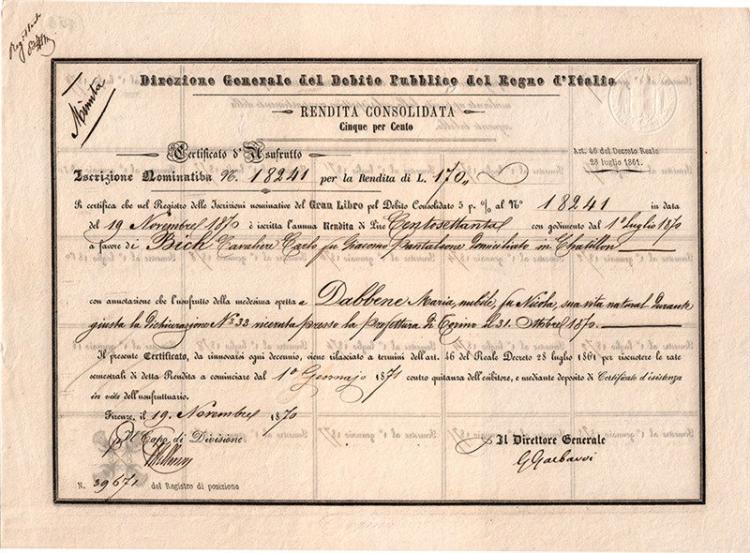 Direzione Generale del Debito Pubblico del Regno d'Italia
RENDITA CONSOLIDATA
Cinque per Cento
Minuta
Art. 46 del Decreto Reale
28 luglio 1861.
Certificato d'Usufrutto
Iscrizione Nominativa N. 18241 per la Rendita di L. 170
Si certifica che nel Registro delle Iscrizioni nominative del Gran Libro pel Debito Consolidato 5 p. % al N° 18241 in data
del 19 Novembre 1870 è iscritta l'annua Rendita di Lire Centosettanta con godimento dal 1° Luglio 1870
a favore di Bich Cavaliere Carlo fu Giacomo Pantaleone domiciliato in Chatillon
con annotazione che l'usufrutto della medesima spetta a Dabbene Maria, nubile, fu Nicola, sua vita natural durante
giusta la Dichiarazione N° 33 ricevuta presso la prefettura di Torino il 31 Ottobre 1870.
Il presente Certificato, da rinnovarsi ogni decennio, viene rilasciato a termini dell'art. 46 del Reale Decreto 28 luglio 1861 per riscuotere le rate
semestrali di detta Rendita a cominciare dal 1° Gennajo 1871 contro quitanza dell'esibitore, e mediante deposito di Certificato d'esistenza
in vita dell'usufruttuario.
Firenze, il 19 Novembre 1870
Il Capo di Divisione
Il Direttore Generale
G Garbarri
N. 39671 del Registro di posizione